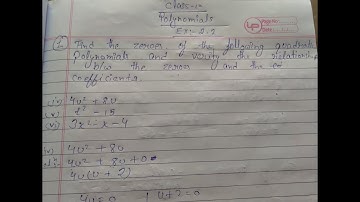 Class-10
Polynomials
Ex:- 2.2
Find the zeroes of the following quadratic
Polynomials and verify the relationship
b/w the zeroes and the co
coefficients.
(iv) 4u² + 8u
(v) t² - 15
(vi) 3x² - x - 4
(iv) 4u² + 8u
4u² + 8u + 0
4u(u + 2)
4u = 0 u + 2 = 0